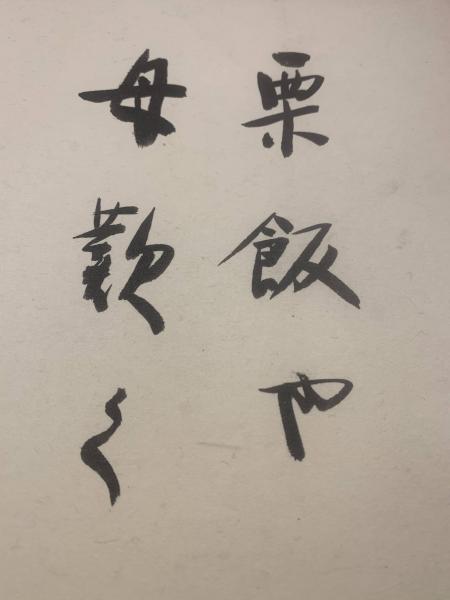 栗飯や
母歎く